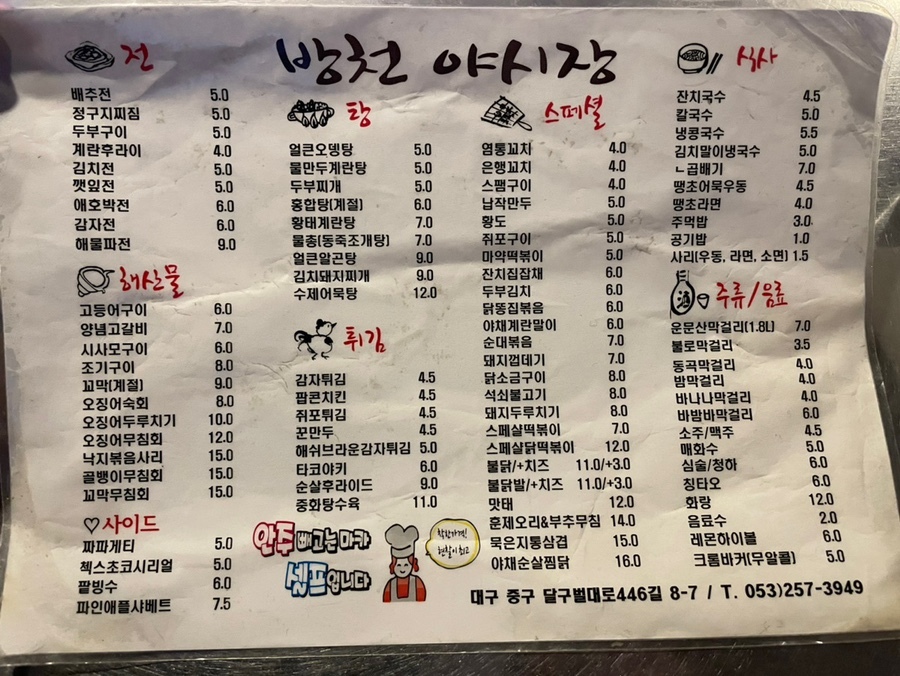 방천 야시장
전
배추전 5.0
정구지찌짐 5.0
두부구이 5.0
계란후라이 4.0
김치전 5.0
깻잎전 5.0
애호박전 6.0
감자전 6.0
해물파전 9.0
해산물
고등어구이 6.0
양념고갈비 7.0
시사모구이 6.0
조기구이 8.0
꼬막(계절) 9.0
오징어숙회 8.0
오징어두루치기 10.0
오징어무침회 12.0
낙지볶음사리 15.0
골뱅이무침회 15.0
꼬막무침회 15.0
♡사이드
짜파게티 5.0
첵스초코시리얼 5.0
팥빙수 6.0
파인애플샤베트 7.5
탕
얼큰오뎅탕 5.0
물만두계란탕 5.0
두부찌개 5.0
홍합탕(계절) 6.0
황태계란탕 7.0
물총(동죽조개탕) 7.0
얼큰알곤탕 9.0
김치돼지찌개 9.0
수제어묵탕 12.0
튀김
감자튀김 4.5
팝콘치킨 4.5
쥐포튀김 4.5
꾼만두 4.5
해쉬브라운감자튀김 5.0
타코야키 6.0
순살후라이드 9.0
중화탕수육 11.0
안주 빼고는 마카
셀프입니다
착한가격!
현찰이 최고
스페셜
염통꼬치 4.0
은행꼬치 4.0
스팸구이 4.0
납작만두 5.0
황도 5.0
쥐포구이 5.0
마약떡볶이 5.0
잔치집잡채 6.0
두부김치 6.0
닭똥집볶음 6.0
야채계란말이 6.0
순대볶음 7.0
돼지껍데기 7.0
닭소금구이 8.0
석쇠불고기 8.0
돼지두루치기 8.0
스페샬떡볶이 7.0
스페샬닭떡볶이 12.0
불닭/+치즈 11.0/+3.0
불닭발/+치즈 11.0/+3.0
맛태 12.0
훈제오리&부추무침 14.0
묵은지통삼겹 15.0
야채순살찜닭 16.0
식사
잔치국수 4.5
칼국수 5.0
냉콩국수 5.5
김치말이냉국수 5.0
ㄴ곱배기 7.0
땡초어묵우동 4.5
땡초라면 4.0
주먹밥 3.0
공기밥 1.0
사리(우동, 라면, 소면) 1.5
酒
주류/음료
운문산막걸리(1.8L) 7.0
불로막걸리 3.5
동곡막걸리 4.0
밤막걸리 4.0
바나나막걸리 4.0
바밤바막걸리 6.0
소주/맥주 4.5
매화수 5.0
심술/청하 6.0
칭타오 6.0
화랑 12.0
음료수 2.0
레몬하이볼 6.0
크롬바커(무알콜) 5.0
대구 중구 달구벌대로446길 8-7 / T. 053)257-3949